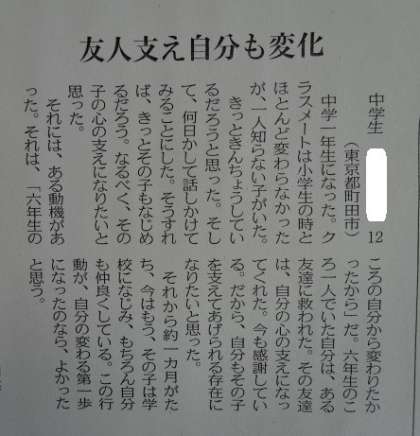 友人支え自分も変化
中学生 12
（東京都町田市）
中学一年生になった。ク
ラスメートは小学生の時と
ほとんど変わらなかった
が、一人知らない子がいた。
きっときんちょうしてい
るだろうと思った。そし
て、何日かして話しかけて
みることにした。そうすれ
ば、きっとその子もなじめ
るだろう。なるべく、その
子の心の支えになりたいと
思った。
それには、ある動機があ
った。それは、「六年生の
ころの自分から変わりたか
ったから」だ。六年生のこ
ろ一人でいた自分は、ある
友達に救われた。その友達
は、自分の心の支えになっ
てくれた。今も感謝してい
る。だから、自分もその子
を支えてあげられる存在に
なりたいと思った。
それから約一カ月がた
ち、今はもう、その子は学
校になじみ、もちろん自分
も仲良くしている。この行
動が、自分の変わる第一歩
になったのなら、よかった
と思う。